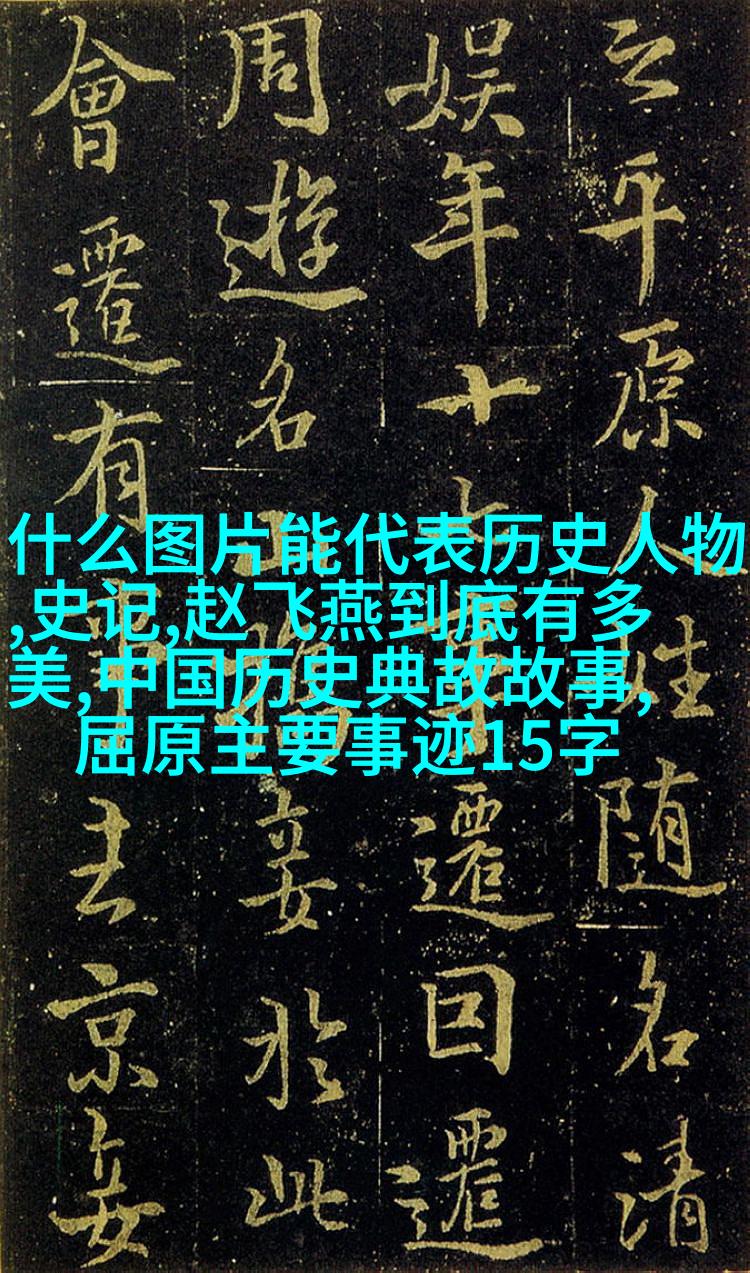 什么图片能代表历史人物
,史记,赵飞燕到底有多
美,中国历史典故故事,
屈原主要事迹15字
云平原人姓随名清
娱年十七遷回遷
周遊名山妾於此
會遷有事京妾